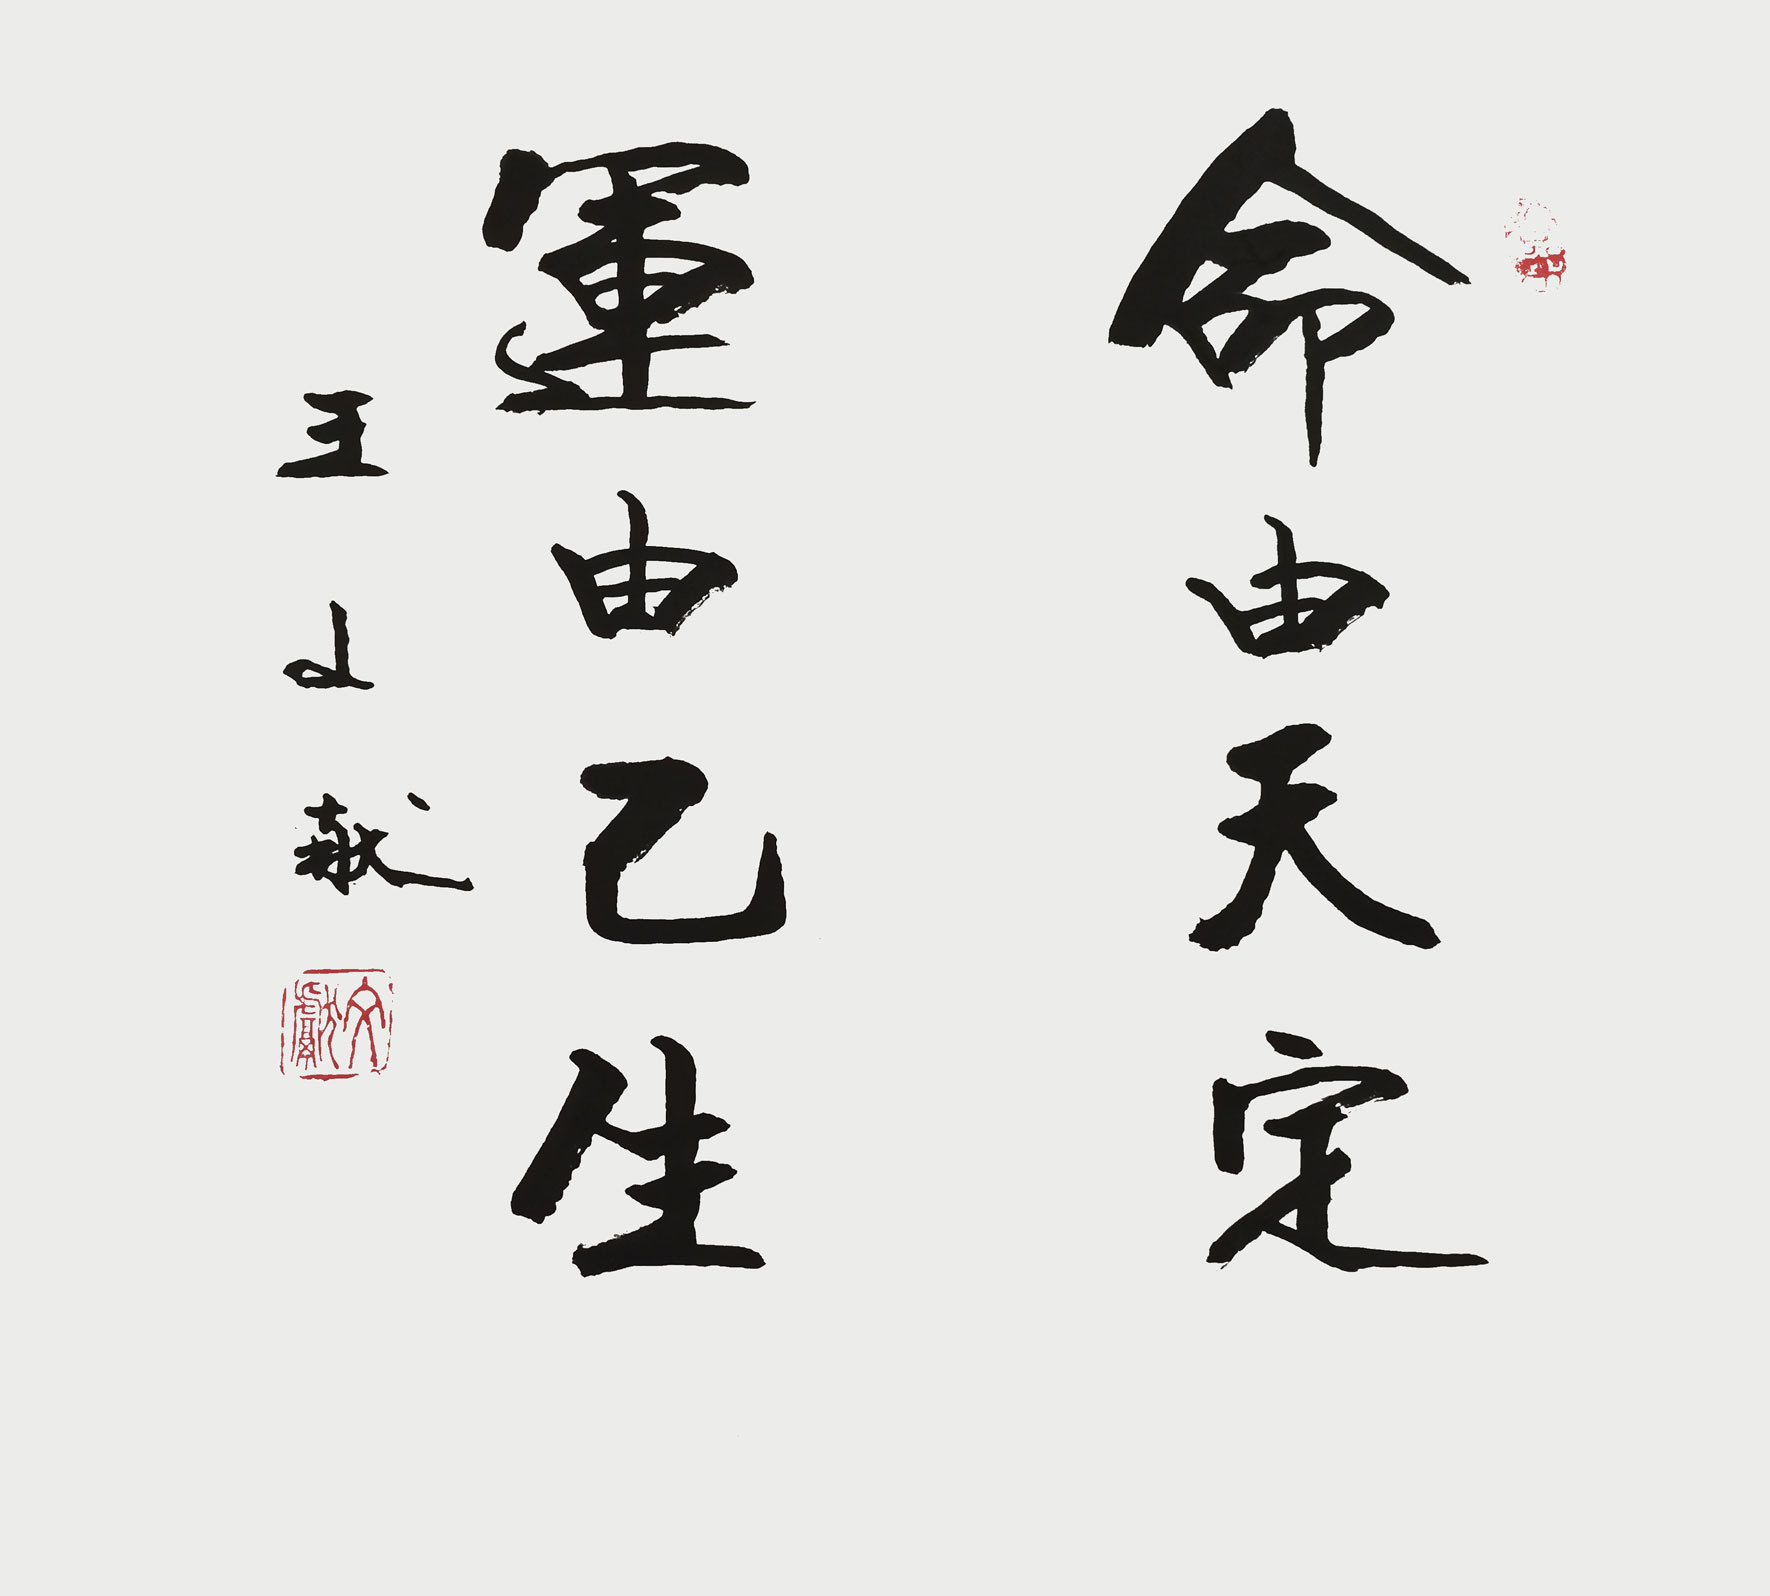 命由天定
運由己生
王文献
文獻